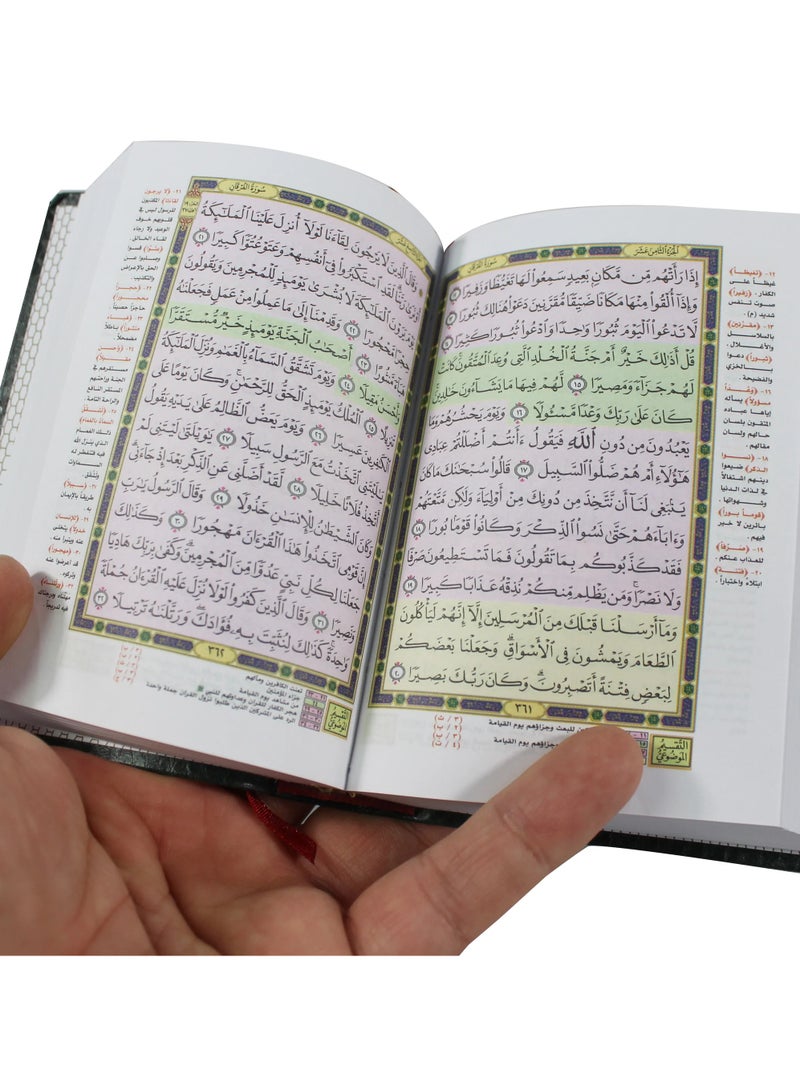 الجزء الثامن عشر
سورة الفرقان
إِذَا رَأَتْهُم مِّن مَّكَانٍ بَعِيدٍ سَمِعُوا لَهَا تَغَيُّظًا وَزَفِيرًا ١٢
وَإِذَا أُلْقُوا مِنْهَا مَكَانًا ضَيِّقًا مُّقَرَّنِينَ دَعَوْا هُنَالِكَ ثُبُورًا ١٣
لَّا تَدْعُوا الْيَوْمَ ثُبُورًا وَاحِدًا وَادْعُوا ثُبُورًا كَثِيرًا ١٤
قُلْ أَذَٰلِكَ خَيْرٌ أَمْ جَنَّةُ الْخُلْدِ الَّتِي وُعِدَ الْمُتَّقُونَ كَانَتْ
لَهُمْ جَزَاءً وَمَصِيرًا ١٥ لَّهُمْ فِيهَا مَا يَشَاءُونَ خَالِدِينَ
كَانَ عَلَىٰ رَبِّكَ وَعْدًا مَّسْئُولًا ١٦ وَيَوْمَ يَحْشُرُهُمْ وَمَا
يَعْبُدُونَ مِن دُونِ اللَّهِ فَيَقُولُ ءَأَنتُمْ أَضْلَلْتُمْ عِبَادِي
هَٰؤُلَاءِ أَمْ هُمْ ضَلُّوا السَّبِيلَ ١٧ قَالُوا سُبْحَانَكَ مَا كَانَ
يَنبَغِي لَنَا أَن نَّتَّخِذَ مِن دُونِكَ مِنْ أَوْلِيَاءَ وَلَٰكِن مَّتَّعْتَهُمْ
وَءَابَاءَهُمْ حَتَّىٰ نَسُوا الذِّكْرَ وَكَانُوا قَوْمًا بُورًا ١٨
فَقَدْ كَذَّبُوكُم بِمَا تَقُولُونَ فَمَا تَسْتَطِيعُونَ صَرْفًا
وَلَا نَصْرًا وَمَن يَظْلِم مِّنكُمْ نُذِقْهُ عَذَابًا كَبِيرًا ١٩
وَمَا أَرْسَلْنَا قَبْلَكَ مِنَ الْمُرْسَلِينَ إِلَّا إِنَّهُمْ لَيَأْكُلُونَ
الطَّعَامَ وَيَمْشُونَ فِي الْأَسْوَاقِ وَجَعَلْنَا بَعْضَكُمْ
لِبَعْضٍ فِتْنَةً أَتَصْبِرُونَ وَكَانَ رَبُّكَ بَصِيرًا ٢٠
٣٦١
التقسيم
الموضوعي
للبعث وجزاؤهم يوم القيامة
وجزاؤهم يوم القيامة
١٢- (تغيظا)
غيظاً على
الكفار. (زفيرا)
صوت تنفس
شديد (م).
١٣- (مقرنين)
بالسلاسل
والأغلال.
(ثبورا) دعوا
بالخزي
والفضيحة.
١٨- (نسوا
الذكر) ضيعوا
دينهم اشتغالاً
في لذات الدنيا
وشهواتها.
(قوما بورا)
بائرين لا خير
فيهم.
١٩- (صرفا)
للعذاب عنكم.
٢٠- (فتنة)
ابتلاءً واختباراً.
سورة الفرقان
وَقَالَ الَّذِينَ لَا يَرْجُونَ لِقَاءَنَا لَوْلَا أُنزِلَ عَلَيْنَا الْمَلَائِكَةُ
أَوْ نَرَىٰ رَبَّنَا لَقَدِ اسْتَكْبَرُوا فِي أَنفُسِهِمْ وَعَتَوْ عُتُوًّا كَبِيرًا ٢١
يَوْمَ يَرَوْنَ الْمَلَائِكَةَ لَا بُشْرَىٰ يَوْمَئِذٍ لِّلْمُجْرِمِينَ وَيَقُولُونَ
حِجْرًا مَّحْجُورًا ٢٢ وَقَدِمْنَا إِلَىٰ مَا عَمِلُوا مِنْ عَمَلٍ فَجَعَلْنَاهُ
هَبَاءً مَّنثُورًا ٢٣ أَصْحَابُ الْجَنَّةِ يَوْمَئِذٍ خَيْرٌ مُّسْتَقَرًّا
وَأَحْسَنُ مَقِيلًا ٢٤ وَيَوْمَ تَشَقَّقُ السَّمَاءُ بِالْغَمَامِ وَنُزِّلَ الْمَلَائِكَةُ
تَنزِيلًا ٢٥ الْمُلْكُ يَوْمَئِذٍ الْحَقُّ لِلرَّحْمَٰنِ وَكَانَ يَوْمًا عَلَى
الْكَافِرِينَ عَسِيرًا ٢٦ وَيَوْمَ يَعَضُّ الظَّالِمُ عَلَىٰ يَدَيْهِ يَقُولُ
يَا لَيْتَنِي اتَّخَذْتُ مَعَ الرَّسُولِ سَبِيلًا ٢٧ يَا وَيْلَتَىٰ لَيْتَنِي لَمْ
أَتَّخِذْ فُلَانًا خَلِيلًا ٢٨ لَّقَدْ أَضَلَّنِي عَنِ الذِّكْرِ بَعْدَ إِذْ جَاءَنِي
وَكَانَ الشَّيْطَانُ لِلْإِنسَانِ خَذُولًا ٢٩ وَقَالَ الرَّسُولُ يَا رَبِّ
إِنَّ قَوْمِي اتَّخَذُوا هَٰذَا الْقُرْءَانَ مَهْجُورًا ٣٠ وَكَذَٰلِكَ
جَعَلْنَا لِكُلِّ نَبِيٍّ عَدُوًّا مِّنَ الْمُجْرِمِينَ وَكَفَىٰ بِرَبِّكَ هَادِيًا
وَنَصِيرًا ٣١ وَقَالَ الَّذِينَ كَفَرُوا لَوْلَا نُزِّلَ عَلَيْهِ الْقُرْءَانُ جُمْلَةً
وَاحِدَةً كَذَٰلِكَ لِنُثَبِّتَ بِهِ فُؤَادَكَ وَرَتَّلْنَاهُ تَرْتِيلًا ٣٢
٣٦٢
التقسيم
الموضوعي
تعنت الكافرين ومآلهم
جزاء المؤمنين
من مشاهد يوم القيامة
هجر الكفار للقرآن وعداوتهم للنبي
الرد على المشركين الذين طلبوا نزول القرآن جملة واحدة